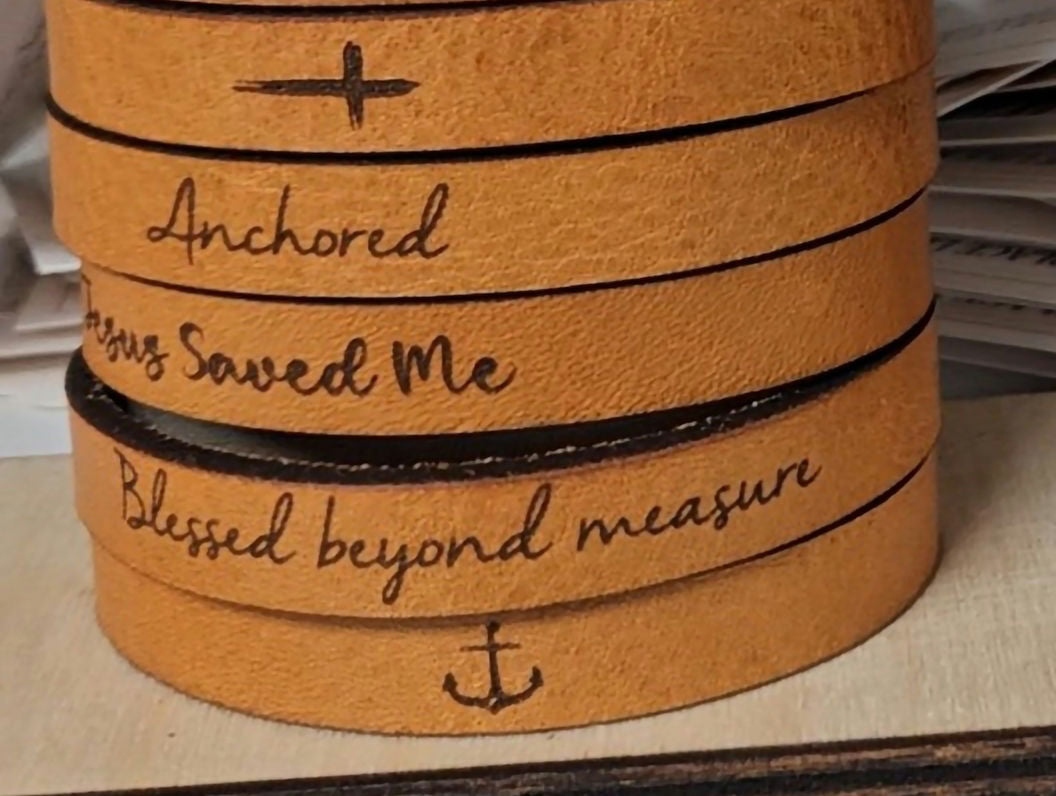 Anchored
Jesus Saved Me
Blessed beyond measure